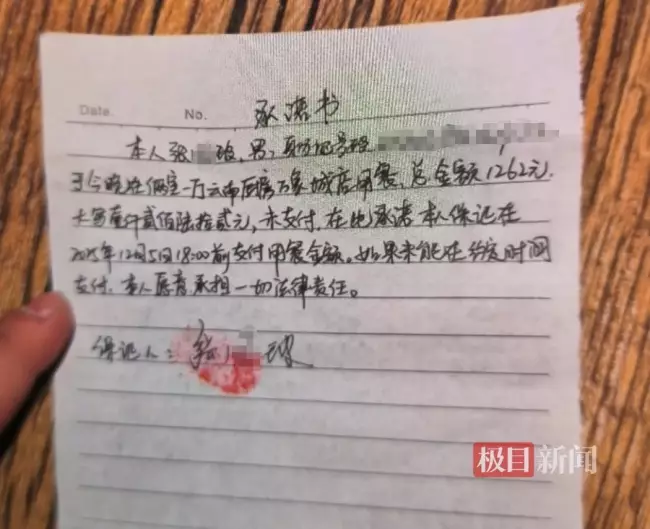 Date. No. 承诺书
本人张 玻,男,身份证号码
于今晚在俩宝一厅云南厨房万象城店用餐,总金额1262元,
大写壹仟贰佰陆拾贰元,未支付,在此承诺本人保证在
2025年12月5日18:00前支付用餐金额。如果未能在约定时间
支付,本人愿意承担一切法律责任。
保证人:张
极目新闻